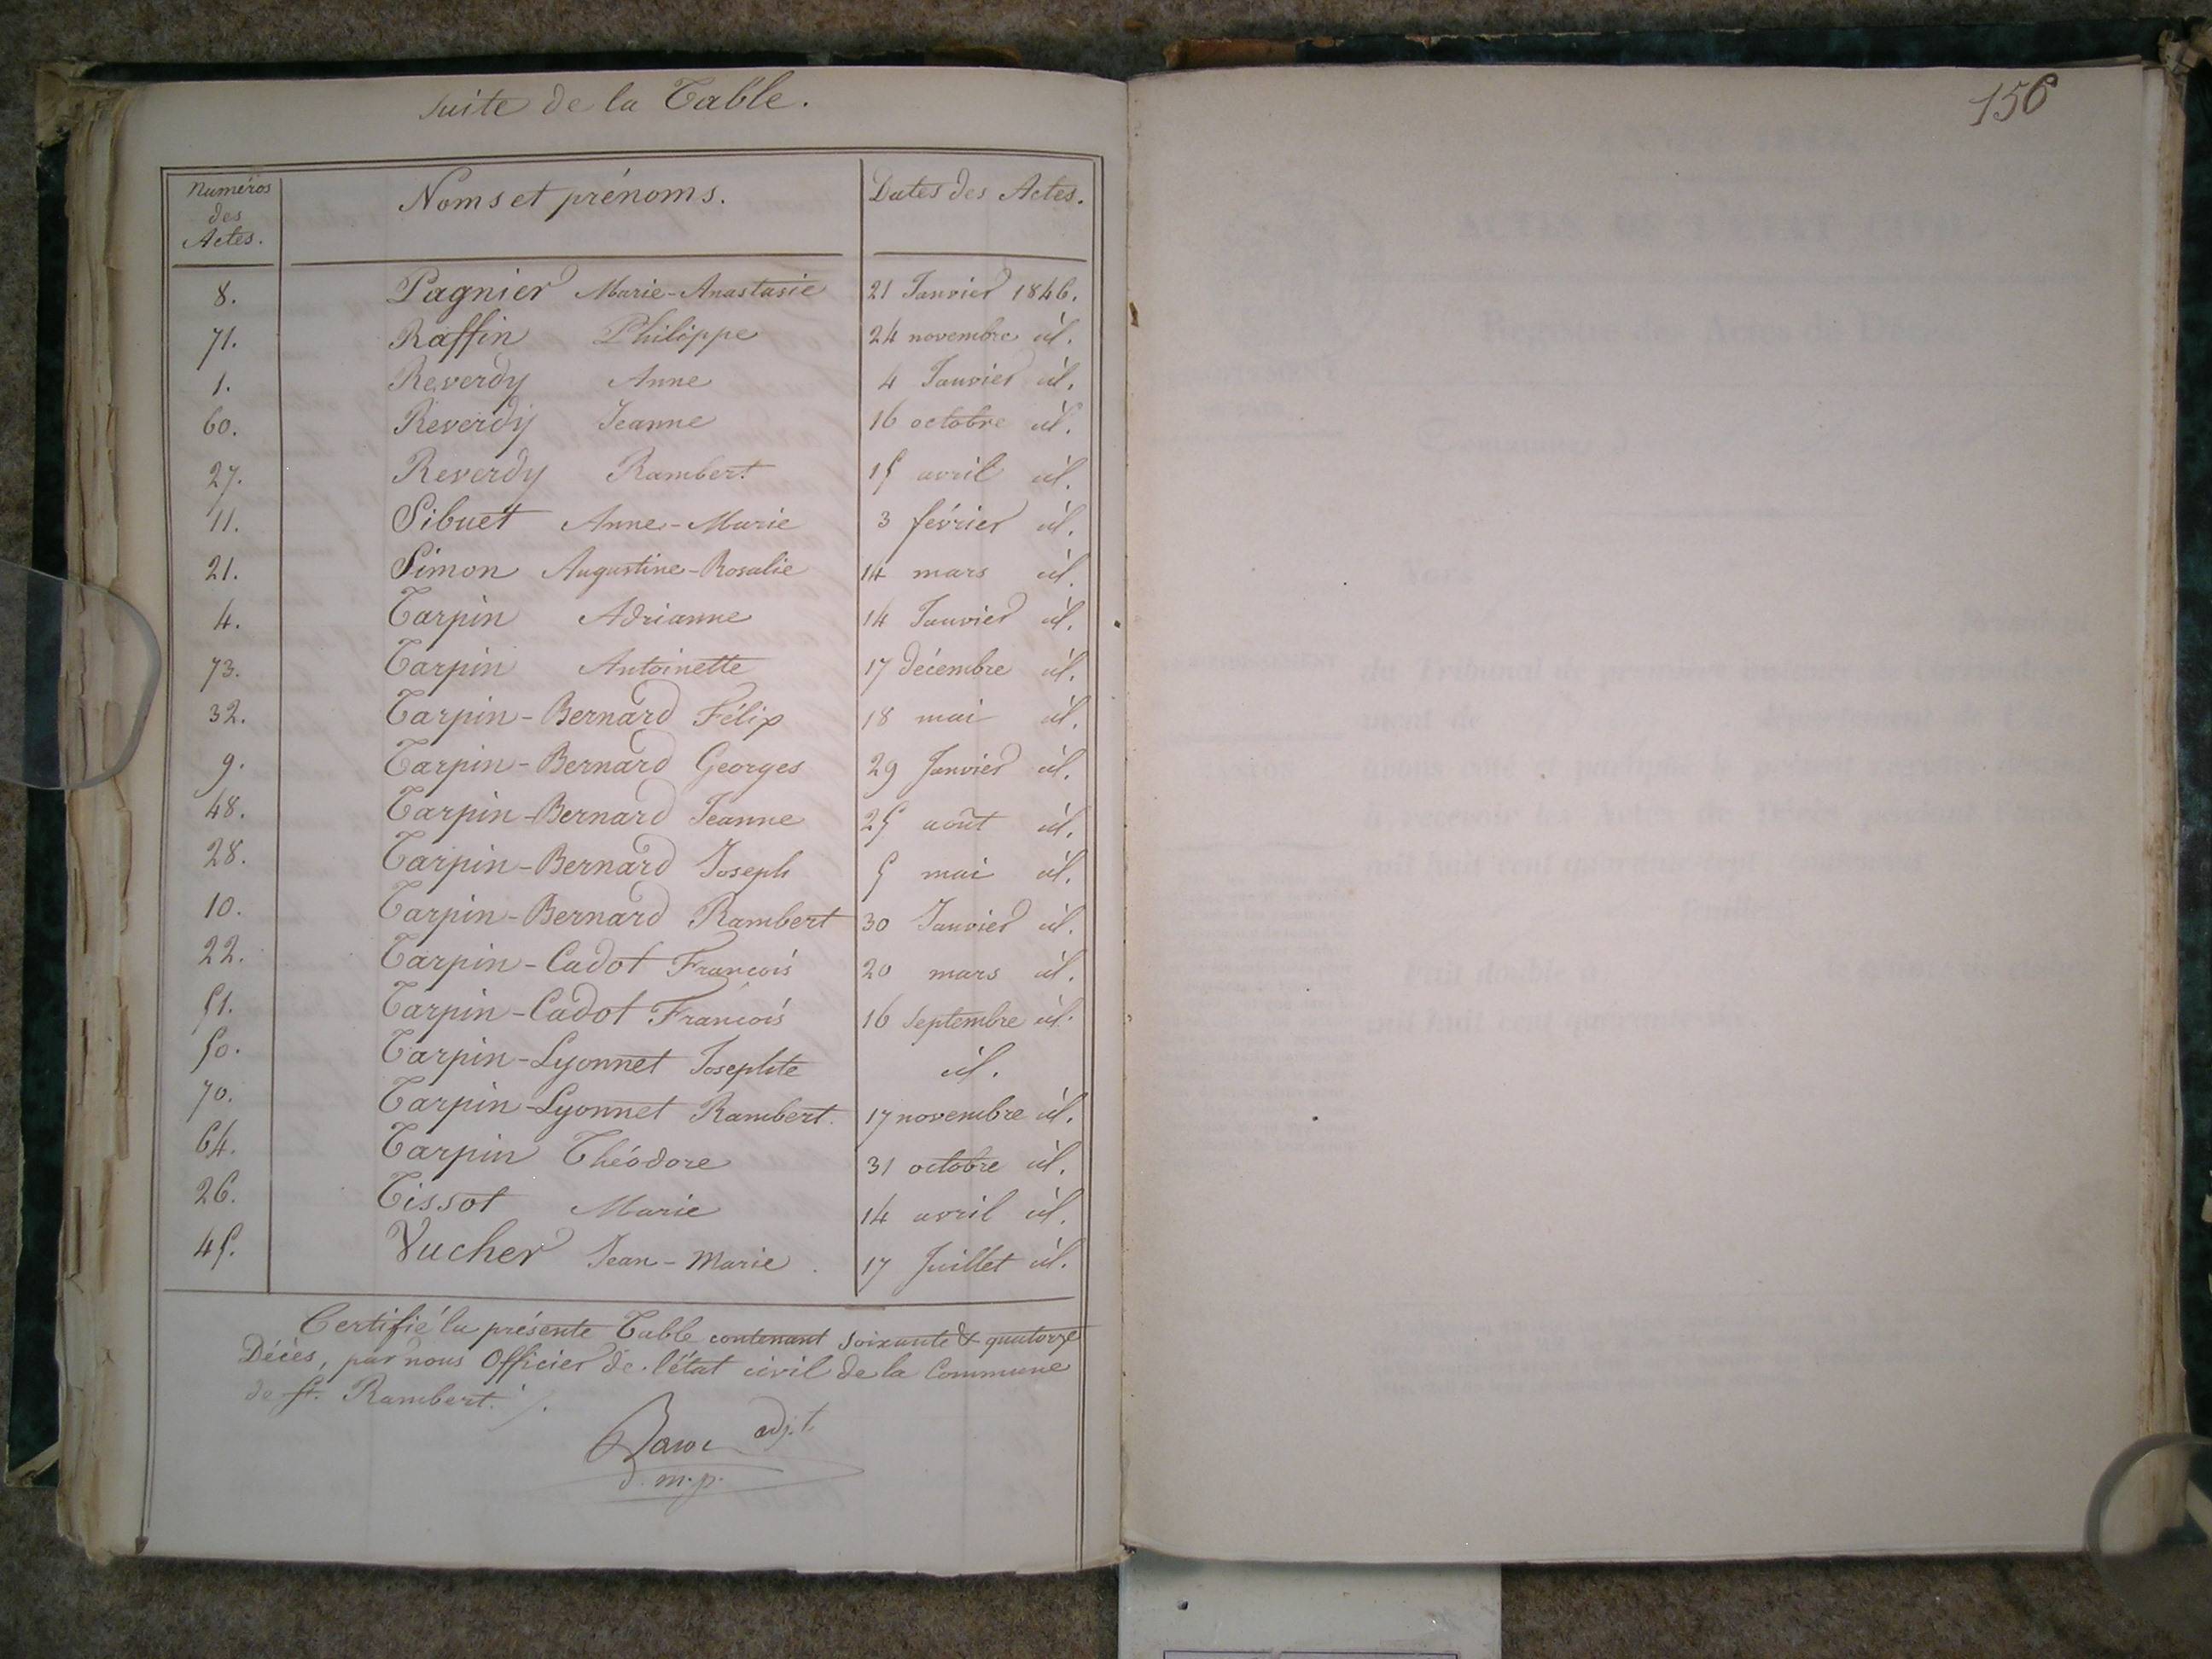 suite de la Table.
Numéros des Actes. Noms et prénoms. Dates des Actes.
8. Pagnier Marie-Anastasie 21 Janvier 1846.
71. Raffin Philippe 24 novembre id.
1. Reverdy Anne 4 Janvier id.
60. Reverdy Jeanne 16 octobre id.
27. Reverdy Rambert 15 avril id.
11. Sibuet Anne-Marie 3 février id.
21. Simon Augustine-Rosalie 14 mars id.
4. Tarpin Adrianne 14 Janvier id.
73. Tarpin Antoinette 17 décembre id.
32. Tarpin-Bernard Félix 18 mai id.
9. Tarpin-Bernard Georges 29 Janvier id.
48. Tarpin-Bernard Jeanne 25 août id.
28. Tarpin-Bernard Joseph 5 mai id.
10. Tarpin-Bernard Rambert 30 Janvier id.
22. Tarpin-Cadot François 20 mars id.
51. Tarpin-Cadot François 16 Septembre id.
50. Tarpin-Lyonnet Josephte id.
70. Tarpin-Lyonnet Rambert. 17 novembre id.
64. Tarpin Théodore 31 octobre id.
26. Tissot Marie 14 avril id.
45. Vucher Jean-Marie. 17 Juillet id.
Certifié la présente Table contenant soixante & quatorze
Décès, par nous Officier de l'état civil de la Commune
de St. Rambert.
adj.t
d. m. p.
156